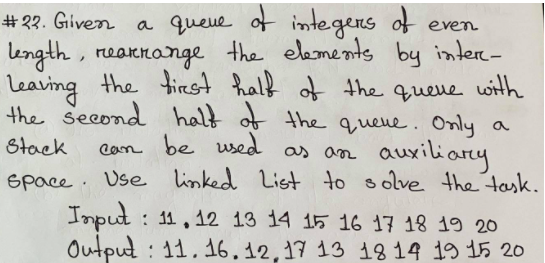 #22. Given a queue of integers of even
length, rearrange the elements by inter-
leaving the first half of the queue with
the second half of the queue. Only a
Stack can be used as an auxiliary
space. Use linked List to solve the task.
Input : 11.12 13 14 15 16 17 18 19 20
Output : 11.16.12,17 13 18 14 19 15 20